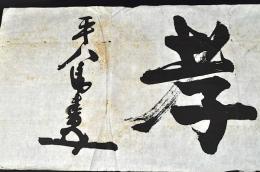 孝
平八郎書